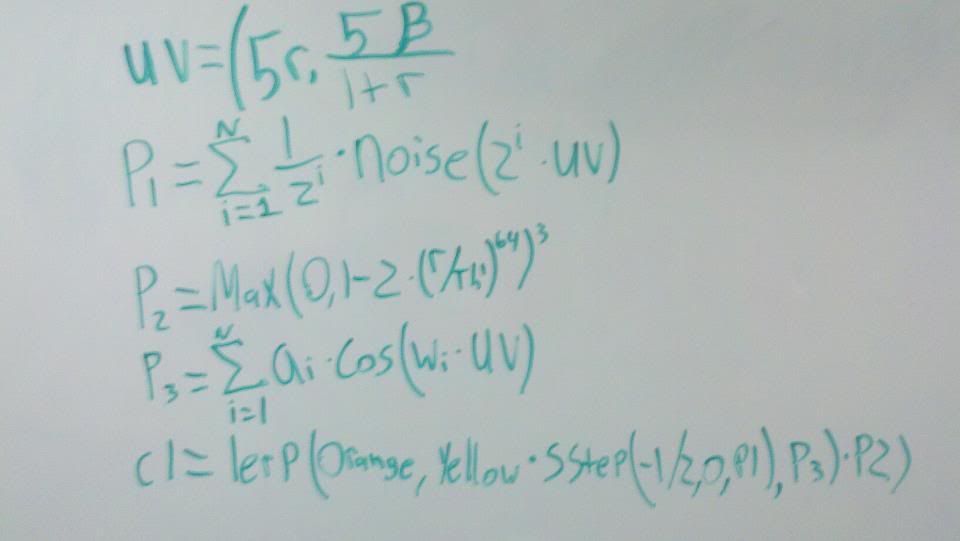 UV=(5r, 5β/1+r
P₁=∑ᴺᵢ₌₁ 1/2ⁱ·noise(2ⁱ·UV)
P₂=Max(0,1-2·(r/)⁶⁴)³
P₃=∑ᴺᵢ₌₁ aᵢ·Cos(Wᵢ·UV)
C1=lerp(Orange, Yellow·SStep(-1/2,0,P1),P₃)·P2)